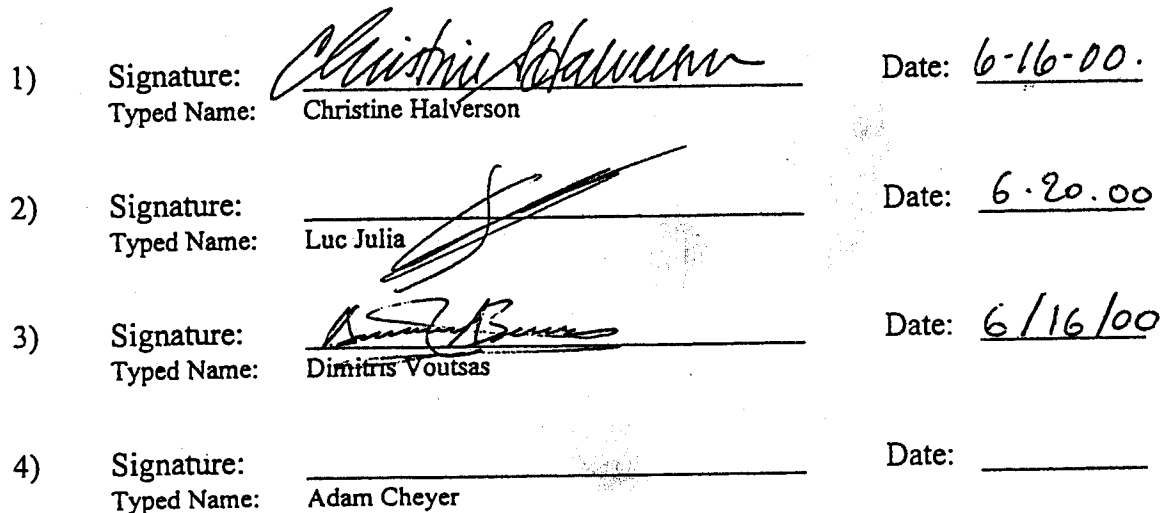 1) Signature: Christine Halverson Date: 6-16-00.
Typed Name: Christine Halverson
2) Signature: Date: 6.20.00
Typed Name: Luc Julia
3) Signature: Date: 6/16/00
Typed Name: Dimitris Voutsas
4) Signature: Date:
Typed Name: Adam Cheyer